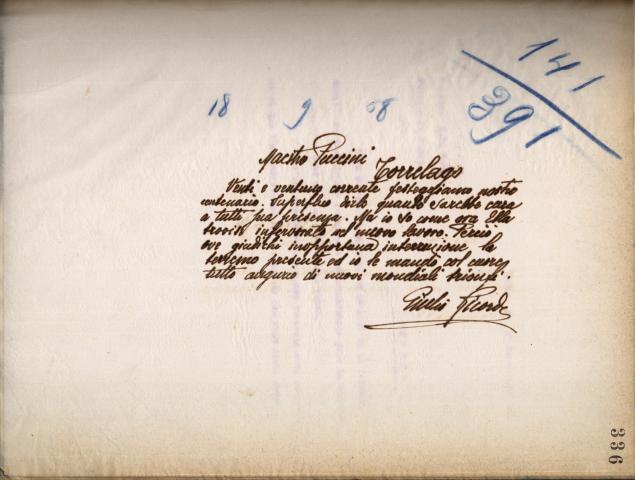 141
391
18 9 08
Maestro Puccini
Torrelago
Venti e ventuno correate festeggiamo nostro
centenario. Superfluo dirle quando sarebbe cara
a tutti sua presenza. Ma io so come ora Ella
trovisi infervorato nel nuovo lavoro. Perciò
ove giudichi inopportuna interruzione lo
terremo presente ed io le mando col cuore
tutto augurio di nuovi mondiali trionfi.
Giulio Ricordi
336